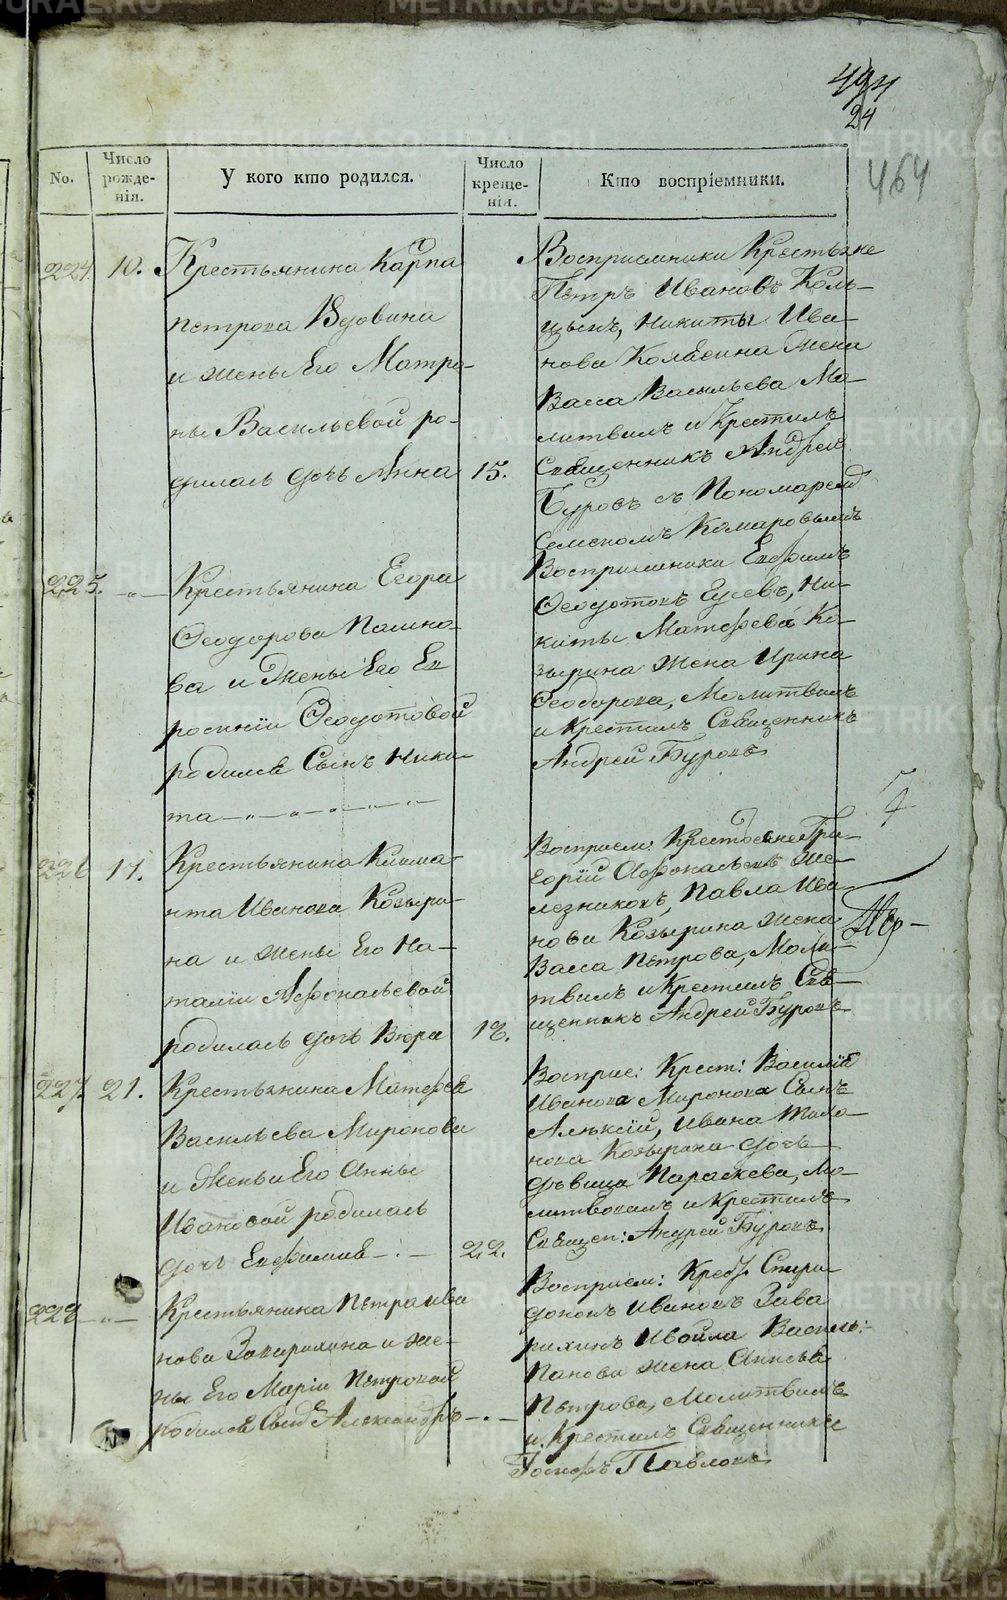 METRIKI.GASO-URAL.RU
494
24
464
No.
Число рожде-нія.
У кого кто родился.
Число креще-нія.
Кто воспріемники.
224. 10.
Крестьянина Карпа
петрова Вдовина
и жены Его Матро-
ны Васильевой ро-
дилась дочь Анна
15.
Восприемники Крестьяне
Петръ Ивановъ Коль-
цынъ, Никиты Ива-
нова жена
Васса Васильева Мо-
литвилъ и Крестилъ
Священникъ Андрей
Буровъ съ Пономаремъ
Комаровымъ
225. -"-
Крестьянина Егора
Ѳеодорова
ва и Жены Его Ев
росиніи Ѳеодотовой
родился Сынъ Ники-
та -"-"-"-"-
Восприемники Евфимъ
Ѳеодотовъ Гусевъ, Ни-
киты Матѳеева Ко-
зырина жена Ирина
Ѳеодорова, Молитвилъ
и Крестилъ Священникъ
Андрей Буровъ
226 17.
Крестьянина Клима-
нта Иванова Козыри-
на и жены Его На-
таліи Афонасьевой
родилась дочь Вѣра
18.
Восприем: Крестьяне Гри-
горій Афонасьевъ Же-
лезниковъ, Павла Ива-
нова Козырина жена
Васса Петрова, Моли-
твилъ и Крестилъ Свя-
щенникъ Андрей Буровъ
227. 21.
Крестьянина Матѳея
Васильева Миронова
и Жены Его Анны
Ивановой родилась
дочь Евфимия -:-
22.
Восприе: Крест: Василія
Иванова Миронова Сынъ
Алексій, Ивана
нова Козырина дочь
дѣвица Параскева, Мо-
литвовалъ и Крестилъ
Священ: Андрей Буровъ
228 -"-
Крестьянина Петра Ива
нова и же-
ны Его Маріи Петровой
родился Сынъ Александръ -"-
Восприем: Спири-
донъ Ивановъ Зава
рихинъ Василь:
Панова жена
Петрова, Молитвилъ
и Крестилъ Священникъ
Іосифъ Павловъ